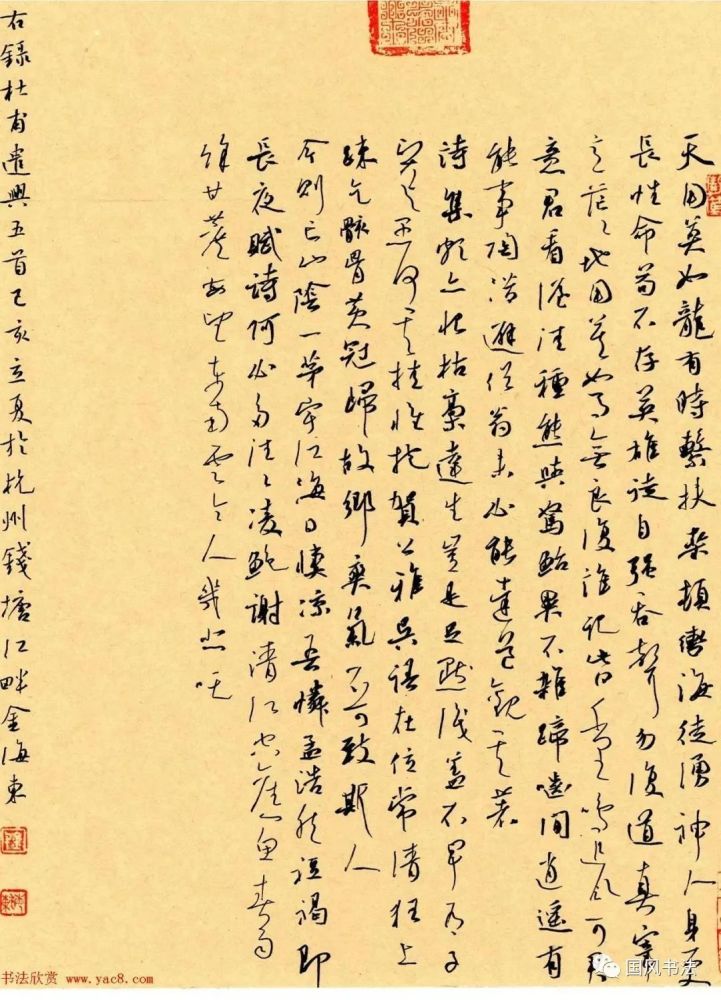 天用莫如龍有時繫扶桑頓轡海徒湧神人身更
長性命苟不存英雄徒自強吞聲勿復道真宰
意茫々地用莫如馬無良復誰記此日千里鳴追風可君
意君看渥洼種態與駑駘異不雜蹄嚙間逍遥有
能事陶潛避俗翁未必能達道觀其著
詩集頗亦恨枯槁達生豈是足默識蓋不早有子
賢與愚何其挂懷抱賀公雅吳語在位常清狂上
疎乞骸骨黃冠歸故鄉爽氣不可致斯人
今則亡山陰一茅宇江海日悽涼吾憐孟浩然裋褐即
長夜賦詩何必多往々凌鮑謝清江空舊魚春雨
餘甘蔗每望東南雲令人幾悲吒
右錄杜甫遣興五首己亥立夏於杭州錢塘江畔金海東
书法欣赏 www.yac8.com
国风书法